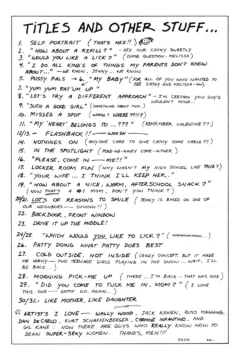 TITLES AND OTHER STUFF...
1. SELF PORTRAIT (THAT'S HER!!)
2. "HOW ABOUT A REFILL?" - SEE OUR CATHY SWEETLY
3. "WOULD YOU LIKE A LICK?" (DUMB QUESTION - MELISSA)
4. "I DO ALL KINDS OF THINGS MY PARENTS DON'T KNOW
ABOUT..." -WE KNOW, JENNY... WE KNOW
5. PUSSY PALS → 6. "MY BABY" (FOR ALL OF YOU WHO WANTED TO
SEE CATHY AND MELISSA
7. "YUM YUM EAT 'UM UP"
8. "LET'S TRY A DIFFERENT APPROACH" - I'M CERTAIN YOU GUYS
WOULDN'T MIND...
9. "SUCH A GOOD GIRL" (SOMETHING ABOUT THIS)
10. MISSED A SPOT (WHAN? WHERE ????)
11. "MY 'HEART' BELONGS TO ...???" (REMEMBER, VALENTINE??)
12/13.- FLASHBACK!! WOOSH
14. NOTHINGS ON (ANYONE CARE TO GIVE CATHY SOME CABLE??)
15. IN THE SPOTLIGHT (POKE-HE-HINEY COME-HITHER)
16. "PLEASE, COME IN ME!!"
17. LOCKER ROOM FUN (WHY WASN'T MY HIGH SCHOOL LIKE THIS?)
18. "YOUR WIFE... I THINK I'LL KEEP HER.."
19. "HOW ABOUT A NICE, WARM, AFTER SCHOOL SNACK?"
(NOW THAT'S A #1 MOM, DON'T YOU THINK?)
20/21. LOTS OF REASONS TO SMILE (JENNY IS BASED ON ONE OF
OUR NEIGHBORS... SHHHHH!!)
22. BACK DOOR, FRONT WINDOW
23. DRIVE IT UP THE MIDDLE!
24/25. "WHICH WOULD YOU LIKE TO LICK?"
26. PATTY DOING WHAT PATTY DOES BEST
27. COLD OUTSIDE, HOT INSIDE (CRAZY CONCEPT, BUT IT MAKE
ME HAPPY - TWO TEENAGE GIRLS PLAYING IN THE SNOW - WAIT, I'LL
BE BACK...)
28. MORNING PICK-ME UP (THERE... I'M BACK - THAT WAS NICE)
29. "DID YOU COME TO TUCK ME IN, MOM?" (I LOVE
THIS ONE - GOTTA GO AGAIN...)
30/31.- LIKE MOTHER, LIKE DAUGHTER
ARTISTS I LOVE - WALLY WOOD, JACK KAMEN, RUSS MANNING,
DAN DECARLO, KURT SCHAFFENBERGER, CARMINE INFANTINO, AND
GIL KANE: NOW THERE ARE GUYS WHO REALLY KNOW HOW TO
DRAW SUPER-SEXY WOMEN. THANKS, MEN!!!